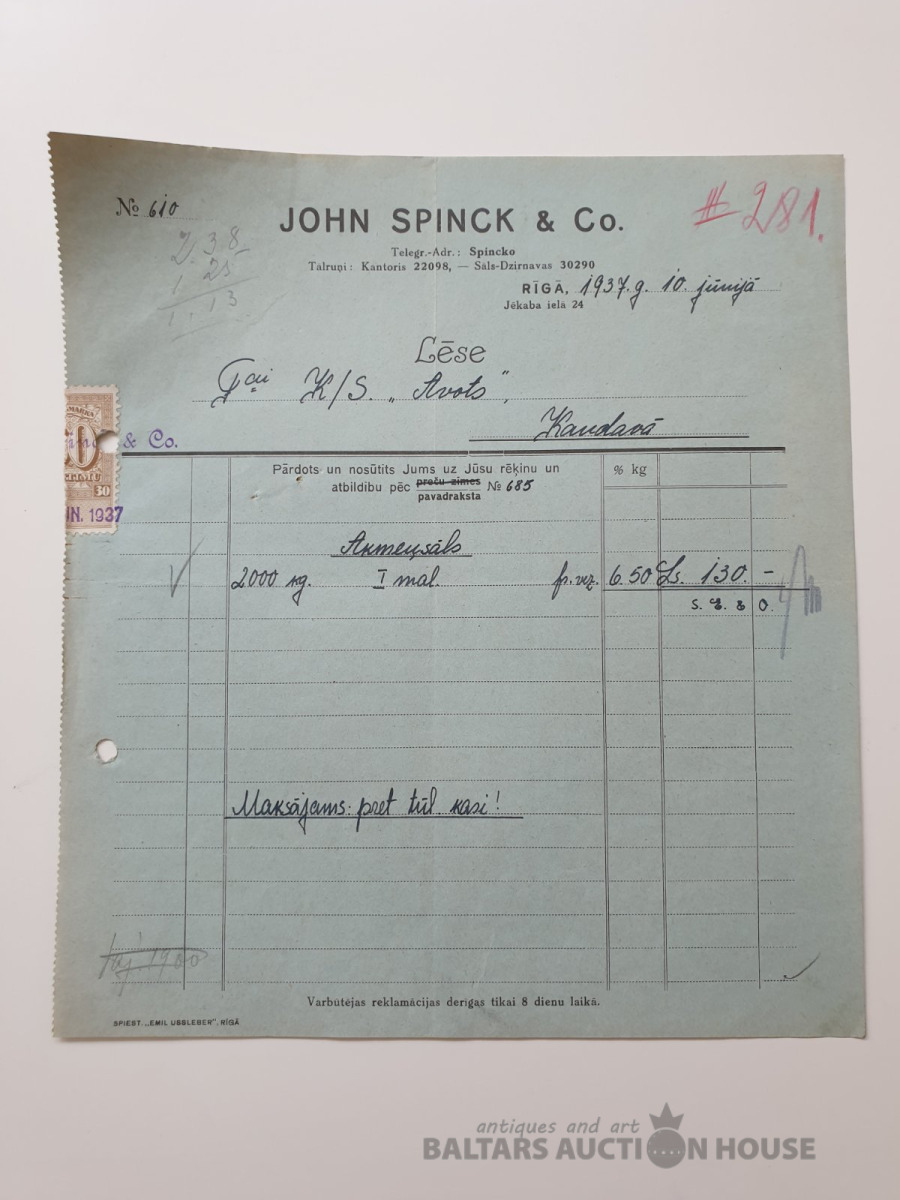 № 610
# 281.
JOHN SPINCK & Co.
2.38
1.25
1.13
Telegr.-Adr.: Spincko
Tālruņi: Kantoris 22098, — Sāls-Dzirnavas 30290
RĪGĀ, 1937.g. 10. jūnijā
Jēkaba ielā 24
Lēse
K/S. „Avots",
Kandavā
MARKA
& Co.
30
1937
Pārdots un nosūtīts Jums uz Jūsu rēķinu un
atbildību pēc preču zīmes № 685
pavadraksta
% kg
Akmeņsāls
2000 kg. I mal. fr. vez. 6.50 Ls. 130. -
S. E. & O.
Maksājams pret tūl. kasi!
1900
Varbūtējas reklamācijas derīgas tikai 8 dienu laikā.
SPIEST. „EMIL USSLEBER", RĪGĀ
antiques and art
BALTARS AUCTION HOUSE